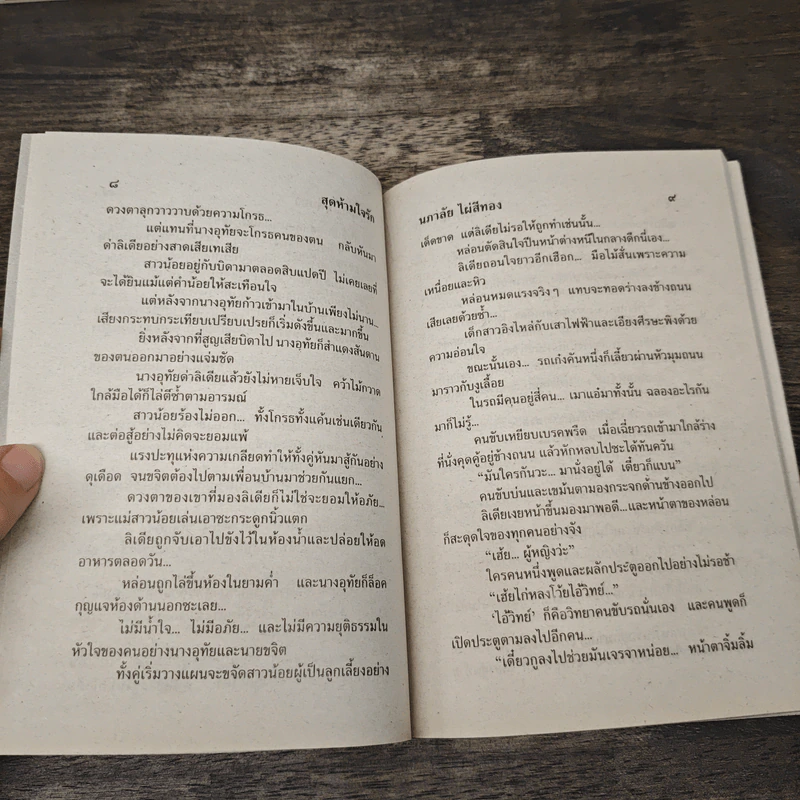 ๘
สุดห้ามใจรัก
ดวงตาลุกวาววาบด้วยความโกรธ...
แต่แทนที่นางอุทัยจะโกรธคนของตน กลับหันมา
ด่าลิเดียอย่างสาดเสียเทเสีย
สาวน้อยอยู่กับบิดามาตลอดสิบแปดปี ไม่เคยเลยที่
จะได้ยินแม้แต่คำน้อยให้สะเทือนใจ
แต่หลังจากนางอุทัยก้าวเข้ามาในบ้านเพียงไม่นาน...
เสียงกระทบกระเทียบเปรียบเปรยก็เริ่มดังขึ้นและมากขึ้น
ยิ่งหลังจากที่สูญเสียบิดาไป นางอุทัยก็สำแดงสันดาน
ของตนออกมาอย่างแจ่มชัด
นางอุทัยด่าลิเดียแล้วยังไม่หายเจ็บใจ คว้าไม้กวาด
ใกล้มือได้ก็ไล่ตีซ้ำตามอารมณ์
สาวน้อยร้องไม่ออก... ทั้งโกรธทั้งแค้นเช่นเดียวกัน
และต่อสู้อย่างไม่คิดจะยอมแพ้
แรงปะทุแห่งความเกลียดทำให้ทั้งคู่หันมาสู้กันอย่าง
ดุเดือด จนขจิตต้องไปตามเพื่อนบ้านมาช่วยกันแยก...
ดวงตาของเขาที่มองลิเดียก็ไม่ใช่จะยอมให้อภัย...
เพราะแม่สาวน้อยเล่นเอาซะกระดูกนิ้วแตก
ลิเดียถูกจับเอาไปขังไว้ในห้องน้ำและปล่อยให้อด
อาหารตลอดวัน...
หล่อนถูกไล่ขึ้นห้องในยามค่ำ และนางอุทัยก็ล็อค
กุญแจห้องด้านนอกซะเลย...
ไม่มีน้ำใจ... ไม่มีอภัย... และไม่มีความยุติธรรมใน
หัวใจของคนอย่างนางอุทัยและนายขจิต
ทั้งคู่เริ่มวางแผนจะขจัดสาวน้อยผู้เป็นลูกเลี้ยงอย่าง
นภาลัย ไผ่สีทอง
๙
เด็ดขาด แต่ลิเดียไม่รอให้ถูกทำเช่นนั้น...
หล่อนตัดสินใจปีนหน้าต่างหนีในกลางดึกนี่เอง...
ลิเดียถอนใจยาวอีกเฮือก... มือไม้สั่นเพราะความ
เหนื่อยและหิว
หล่อนหมดแรงจริงๆ แทบจะทอดร่างลงข้างถนน
เสียเลยด้วยซ้ำ...
เด็กสาวอิงไหล่กับเสาไฟฟ้าและเอียงศีรษะพิงด้วย
ความอ่อนใจ
ขณะนั้นเอง... รถเก๋งคันหนึ่งก็เลี้ยวผ่านหัวมุมถนน
มาราวกับงูเลื้อย
ในรถมีคนอยู่สี่คน... เมาแอ๋มาทั้งนั้น ฉลองอะไรกัน
มาก็ไม่รู้...
คนขับเหยียบเบรคพรืด เมื่อเฉี่ยวรถเข้ามาใกล้ร่าง
ที่นั่งคุดคู้อยู่ข้างถนน แล้วหักหลบไปซะได้ทันควัน
“มันใครกันวะ... มานั่งอยู่ได้ เดี๋ยวก็แบน”
คนขับบ่นและเขม้นตามองกระจกด้านข้างออกไป
ลิเดียเงยหน้าขึ้นมองมาพอดี...และหน้าตาของหล่อน
ก็สะดุดใจของทุกคนอย่างจัง
“เฮ้ย... ผู้หญิงว่ะ”
ใครคนหนึ่งพูดและผลักประตูออกไปอย่างไม่รอช้า
“เฮ้ยไก่หลงโว้ยไอ้วิทย์...”
‘ไอ้วิทย์’ ก็คือวิทยาคนขับรถนั่นเอง และคนพูดก็
เปิดประตูตามลงไปอีกคน...
“เดี๋ยวกูลงไปช่วยมันเจรจาหน่อย... หน้าตาจิ้มลิ้ม